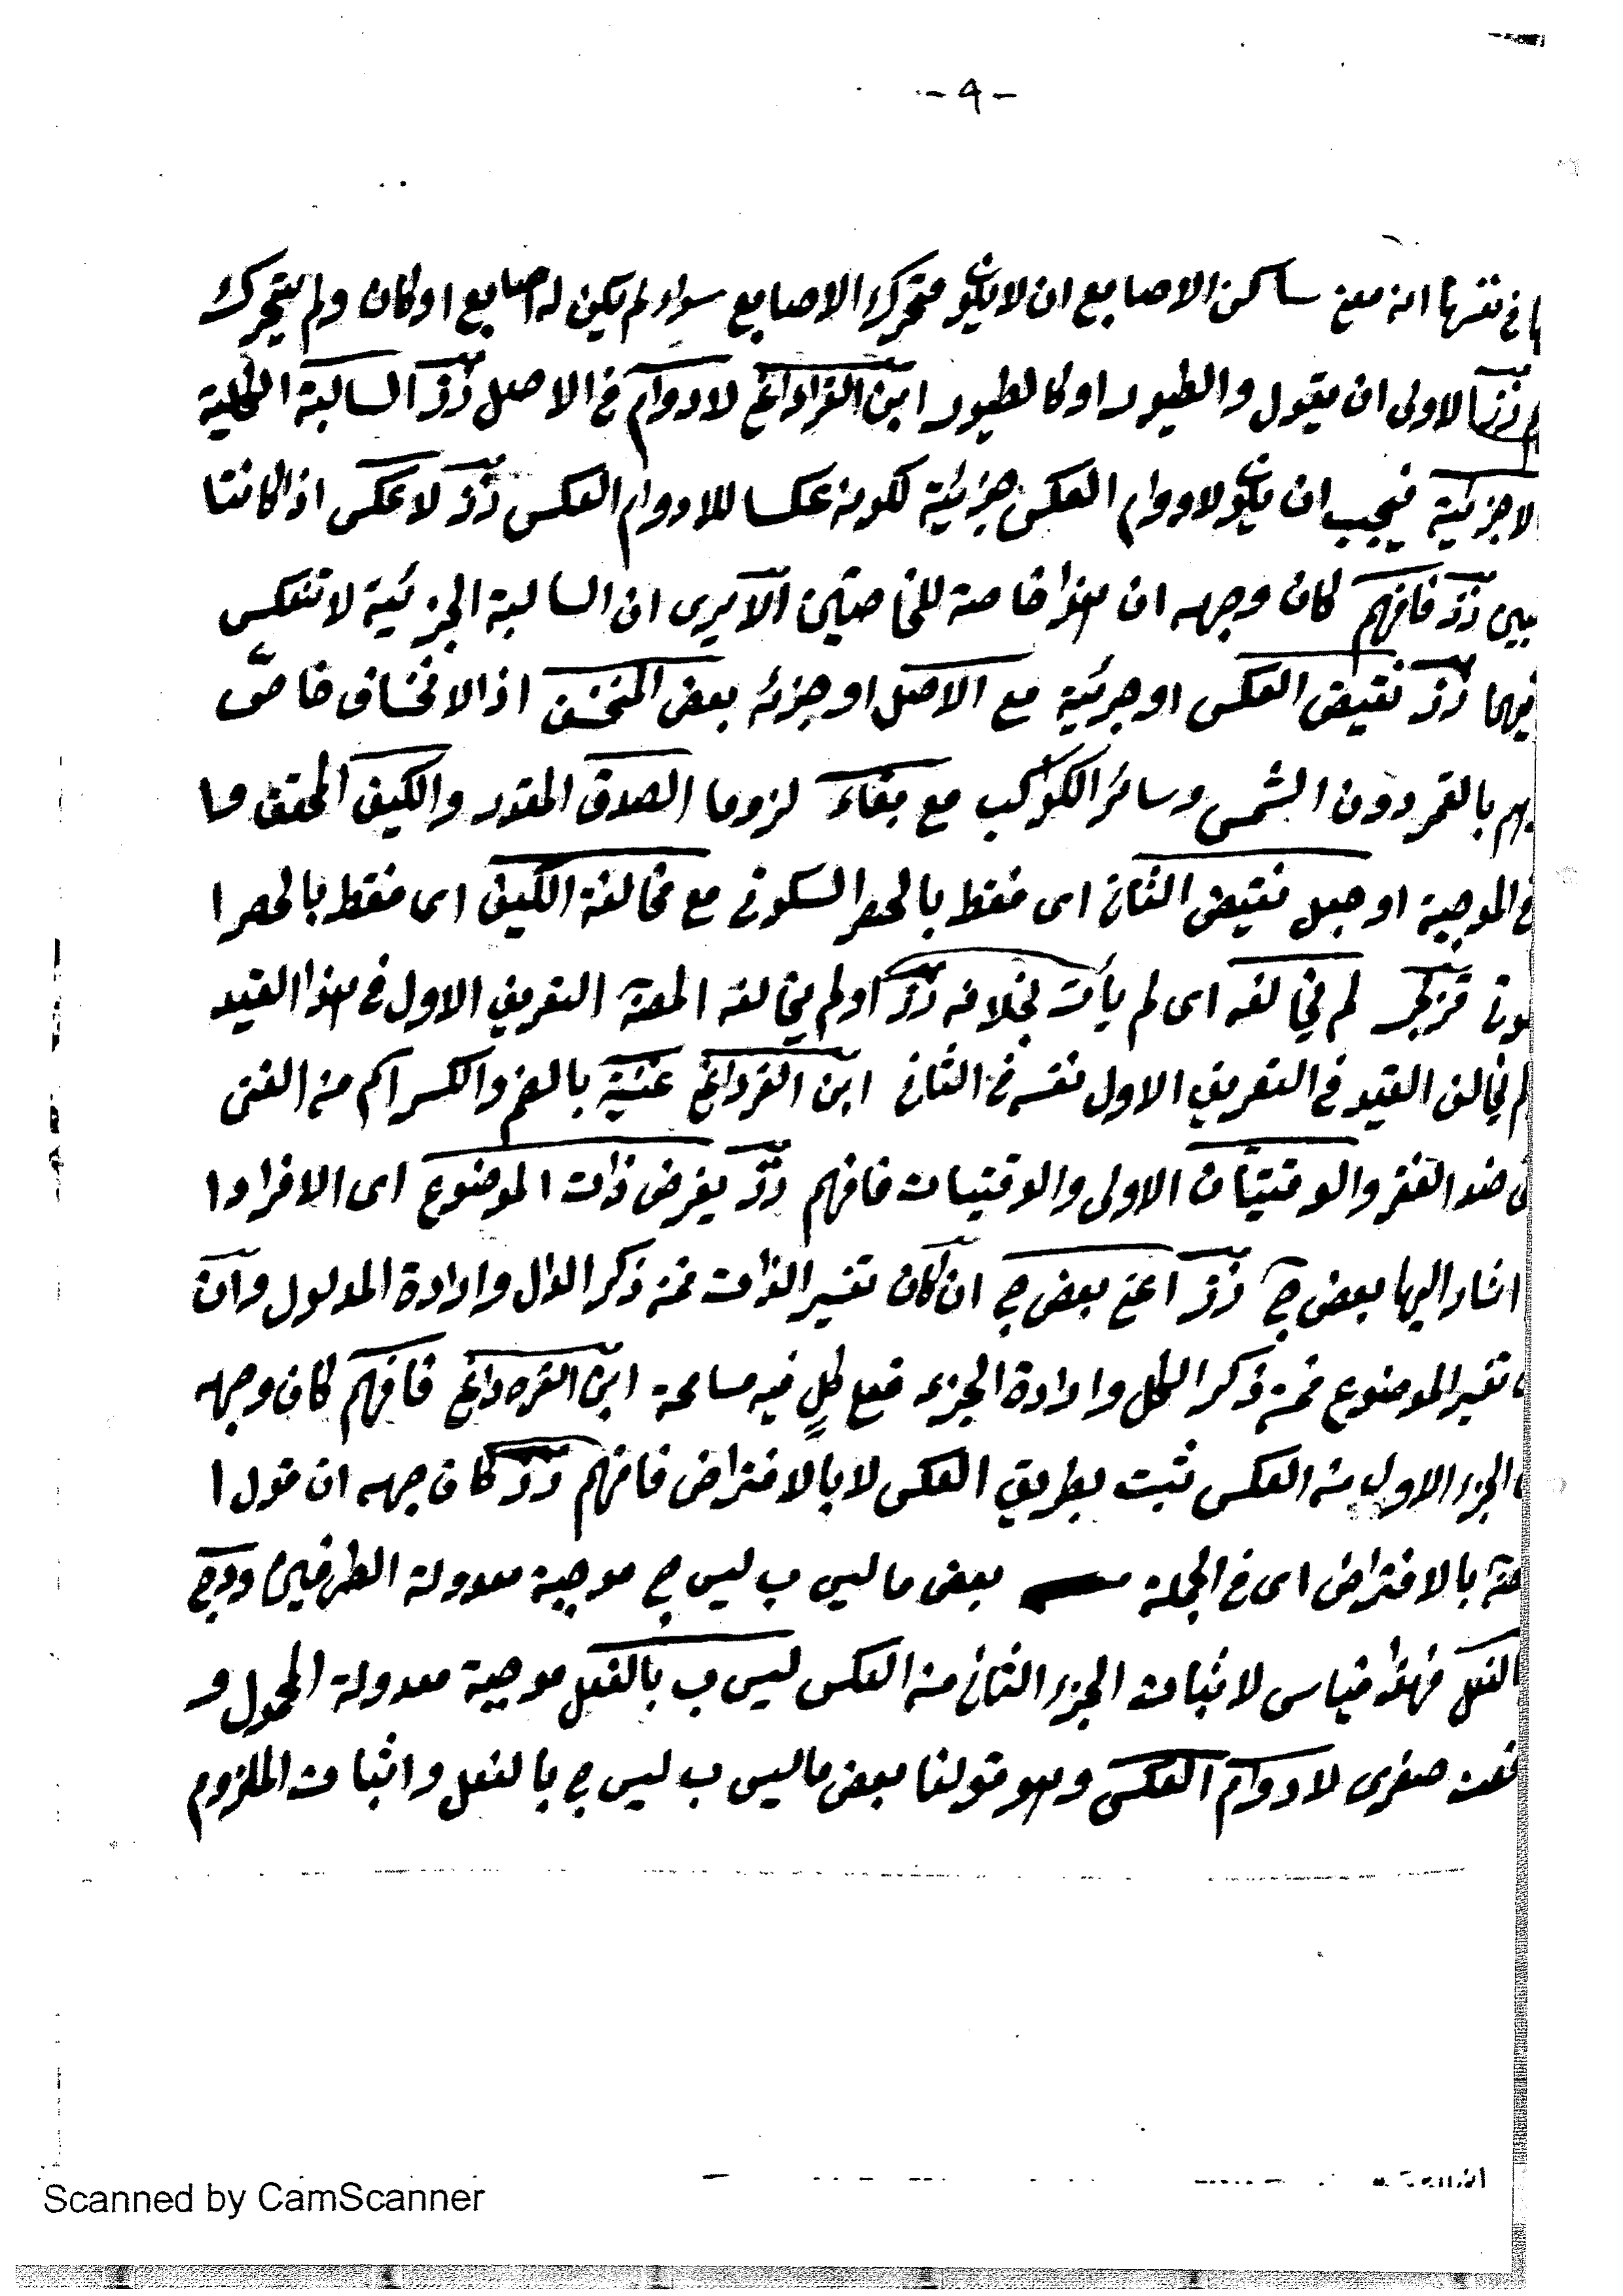 -٩-
في نفسها انه معنى ساكن الاصابع ان لا يكون متحرك الاصابع سواء لم يكن له اصابع او كان ولم يتحرك
الاولى ان يقول والطيور او كالطيور ابن القرداغي لا دوام في الاصل السالبة الكلية
لا جزئية فيجب ان يكون لا دوام العكس جزئية لكونه عكسا للادوام العكس لا عكس اذا كانتا
فافهم كان وجهه ان هذا خاصة للخاصتين الا يرى ان السالبة الجزئية لا تنعكس
فيهما نقيض العكس او جزئية مع الاصل او جزئه بعض المنخسف اذ الانخساف خاص
بالقمر دون الشمس وسائر الكواكب مع بقاء لزوما الصدق المقدر والكيف المحقق
الموجبة او جعل نقيض الثاني اى فقط بالحصر السكوتى مع مخالفة الكيف اى فقط بالحصر ا
لم يخالفه اى لم يأت بخلافه او لم يخالف التعريف الاول في هذا القيد
لم يخالف القيد في التعريف الاول نفسه في الثاني ابن القرداغي غنية بالضم والكسر اسم من الغنى
ضد الفقر والوقتيتان الاولى والوقتيات فافهم يفرض ذات الموضوع اى الافراد ا
اشار اليها بعض ج اعنى بعض ج ان كان تفسير الذات فمن ذكر الدال وارادة المدلول وان
تفسير الموضوع فمن ذكر الكل وارادة الجزء فعلى كل فيه مسامحة ابن القره داغي فافهم كان وجهه
الجزء الاول من العكس ثبت بطريق العكس لا بالافتراض فافهم كان جهه ان قول ا
بالافتراض اى في الجملة بعض ما ليس ب ليس ج موجبة معدولة الطرفين ودبج
الفعل فهذا قياس لاثبات الجزء الثاني من العكس ليس ب بالفعل موجبة معدولة المحمول و
صغرى لا دوام العكس وهو قولنا بعض ما ليس ب ليس ج بالفعل واثبات الملزوم
Scanned by CamScanner